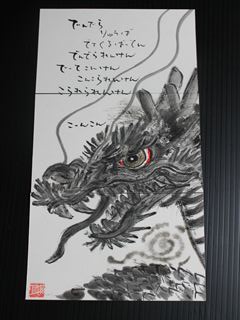 でんでら
りゅうば
でてくるばってん
でんでられんけん
でーてこんけん
こんこられんけん
こられられんけん
こーんこん